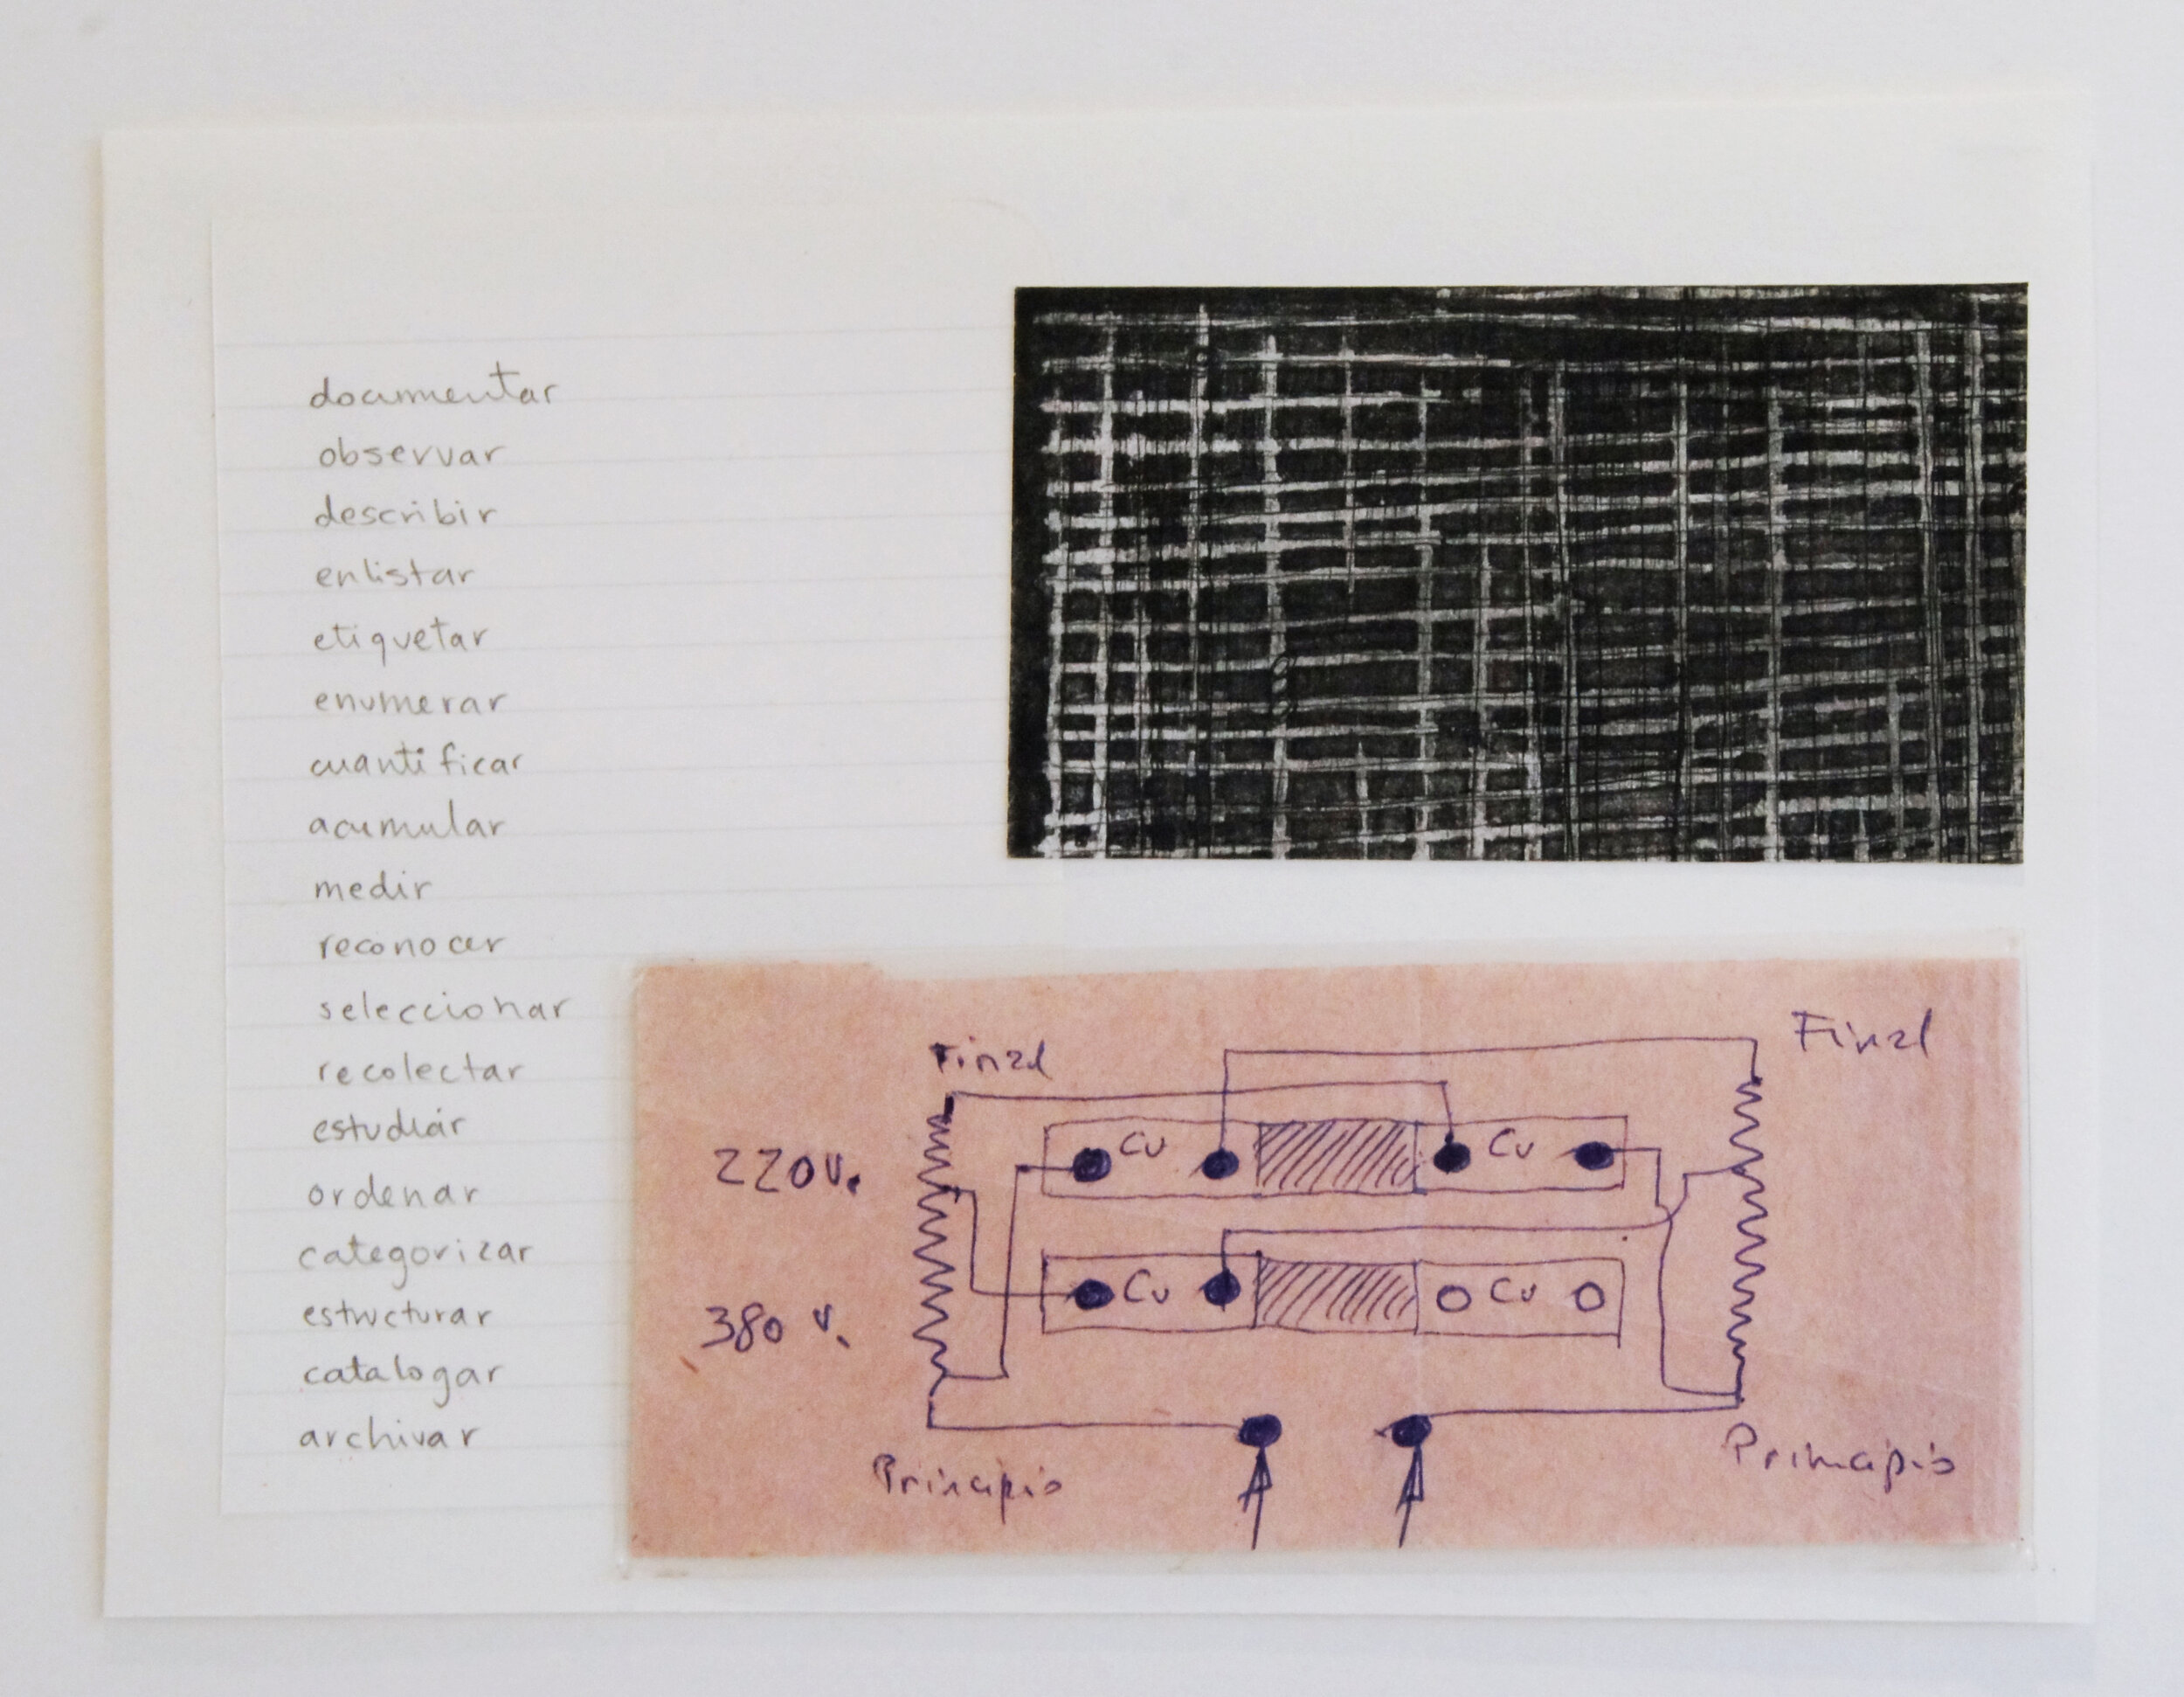 documentar
observar
describir
enlistar
etiquetar
enumerar
cuantificar
acumular
medir
reconocer
seleccionar
recolectar
estudiar
ordenar
categorizar
estructurar
catalogar
archivar
Final Final
220 v. Cu Cu
380 v. Cu Cu
Principio Principio